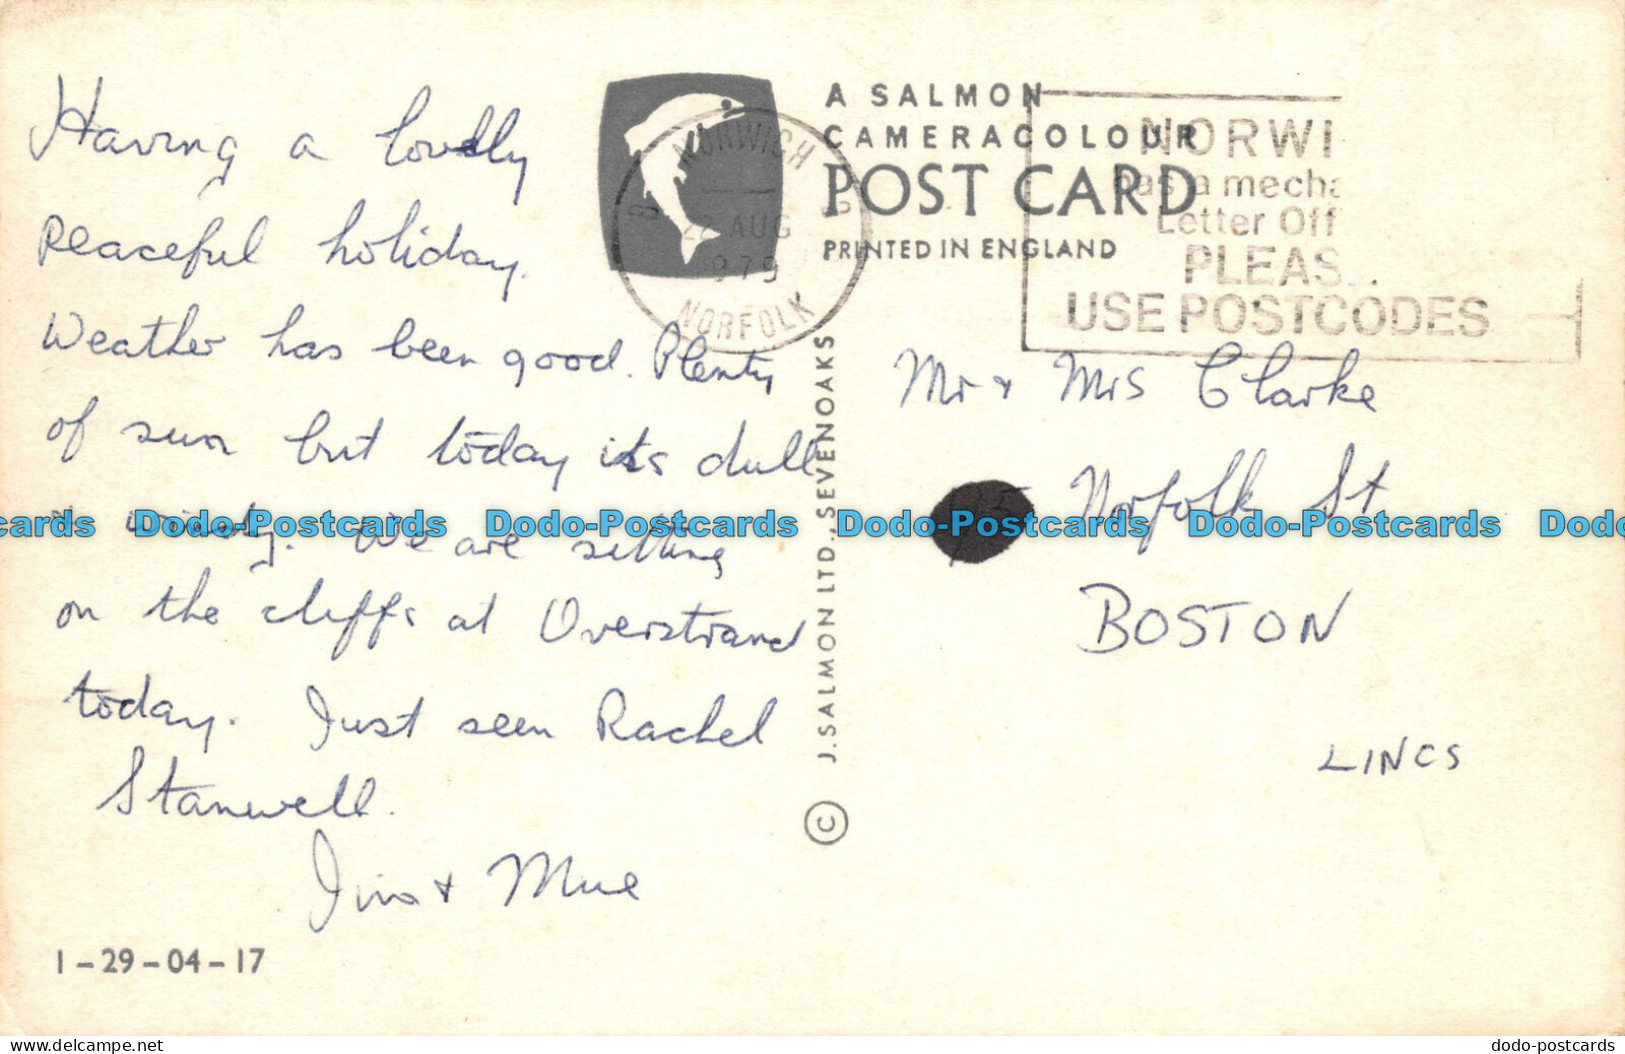 Having a lovely
peaceful holiday.
Weather has been good. Plenty
of sun but today its dull
& windy. We are sitting
on the cliffs at Overstrand
today. Just seen Rachel
Stanwell.
1-29-04-17
A SALMON
CAMERACOLOUR
POST CARD
PRINTED IN ENGLAND
NORWICH
22 AUG
979
NORFOLK
NORWI
has a mecha
Letter Off
PLEAS
USE POSTCODES
J. SALMON LTD., SEVENOAKS ©
Mr & Mrs Clarke
Norfolk St
BOSTON
LINCS
Dodo-Postcards Dodo-Postcards Dodo-Postcards Dodo-Postcards Dodo
delcampe.net
dodo-postcards